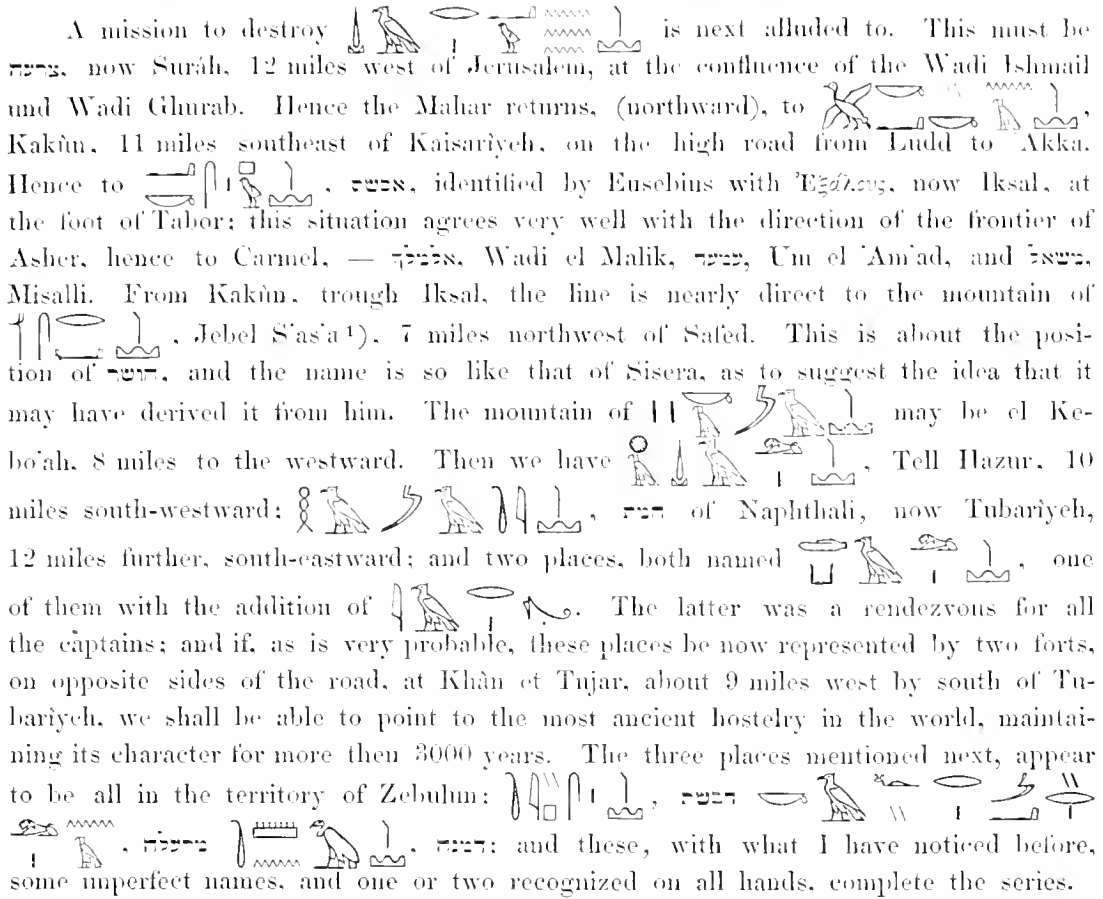 A mission to destroy is next alluded to. This must be
צרעה, now Suráh, 12 miles west of Jerusalem, at the confluence of the Wadi Ishmail
und Wadi Ghurab. Hence the Mahar returns, (northward), to ,
Kakûn, 11 miles southeast of Kaisarîyeh, on the high road from Ludd to ʿAkka.
Hence to , identified by Eusebius with Ἐξάλους, now Iksal, at
the foot of Tabor; this situation agrees very well with the direction of the frontier of
Asher, hence to Carmel, — אלמלך, Wadi el Malik, עמעד, Um el ʿAmʿad, and משאל,
Misalli. From Kakûn, trough Iksal, the line is nearly direct to the mountain of
, Jebel Sʿasʿa ¹), 7 miles northwest of Safed. This is about the posi-
tion of , and the name is so like that of Sisera, as to suggest the idea that it
may have derived it from him. The mountain of may be el Ke-
boʿah, 8 miles to the westward. Then we have , Tell Hazur, 10
miles south-westward; , חמת of Naphthali, now Tubarîyeh,
12 miles further, south-eastward; and two places, both named , one
of them with the addition of . The latter was a rendezvous for all
the captains; and if, as is very probable, these places be now represented by two forts,
on opposite sides of the road, at Khàn et Tujar, about 9 miles west by south of Tu-
barîyeh, we shall be able to point to the most ancient hostelry in the world, maintai-
ning its character for more then 3000 years. The three places mentioned next, appear
to be all in the territory of Zebulun: , דבשת
, מרעלה , דמנה; and these, with what I have noticed before,
some imperfect names, and one or two recognized on all hands, complete the series.